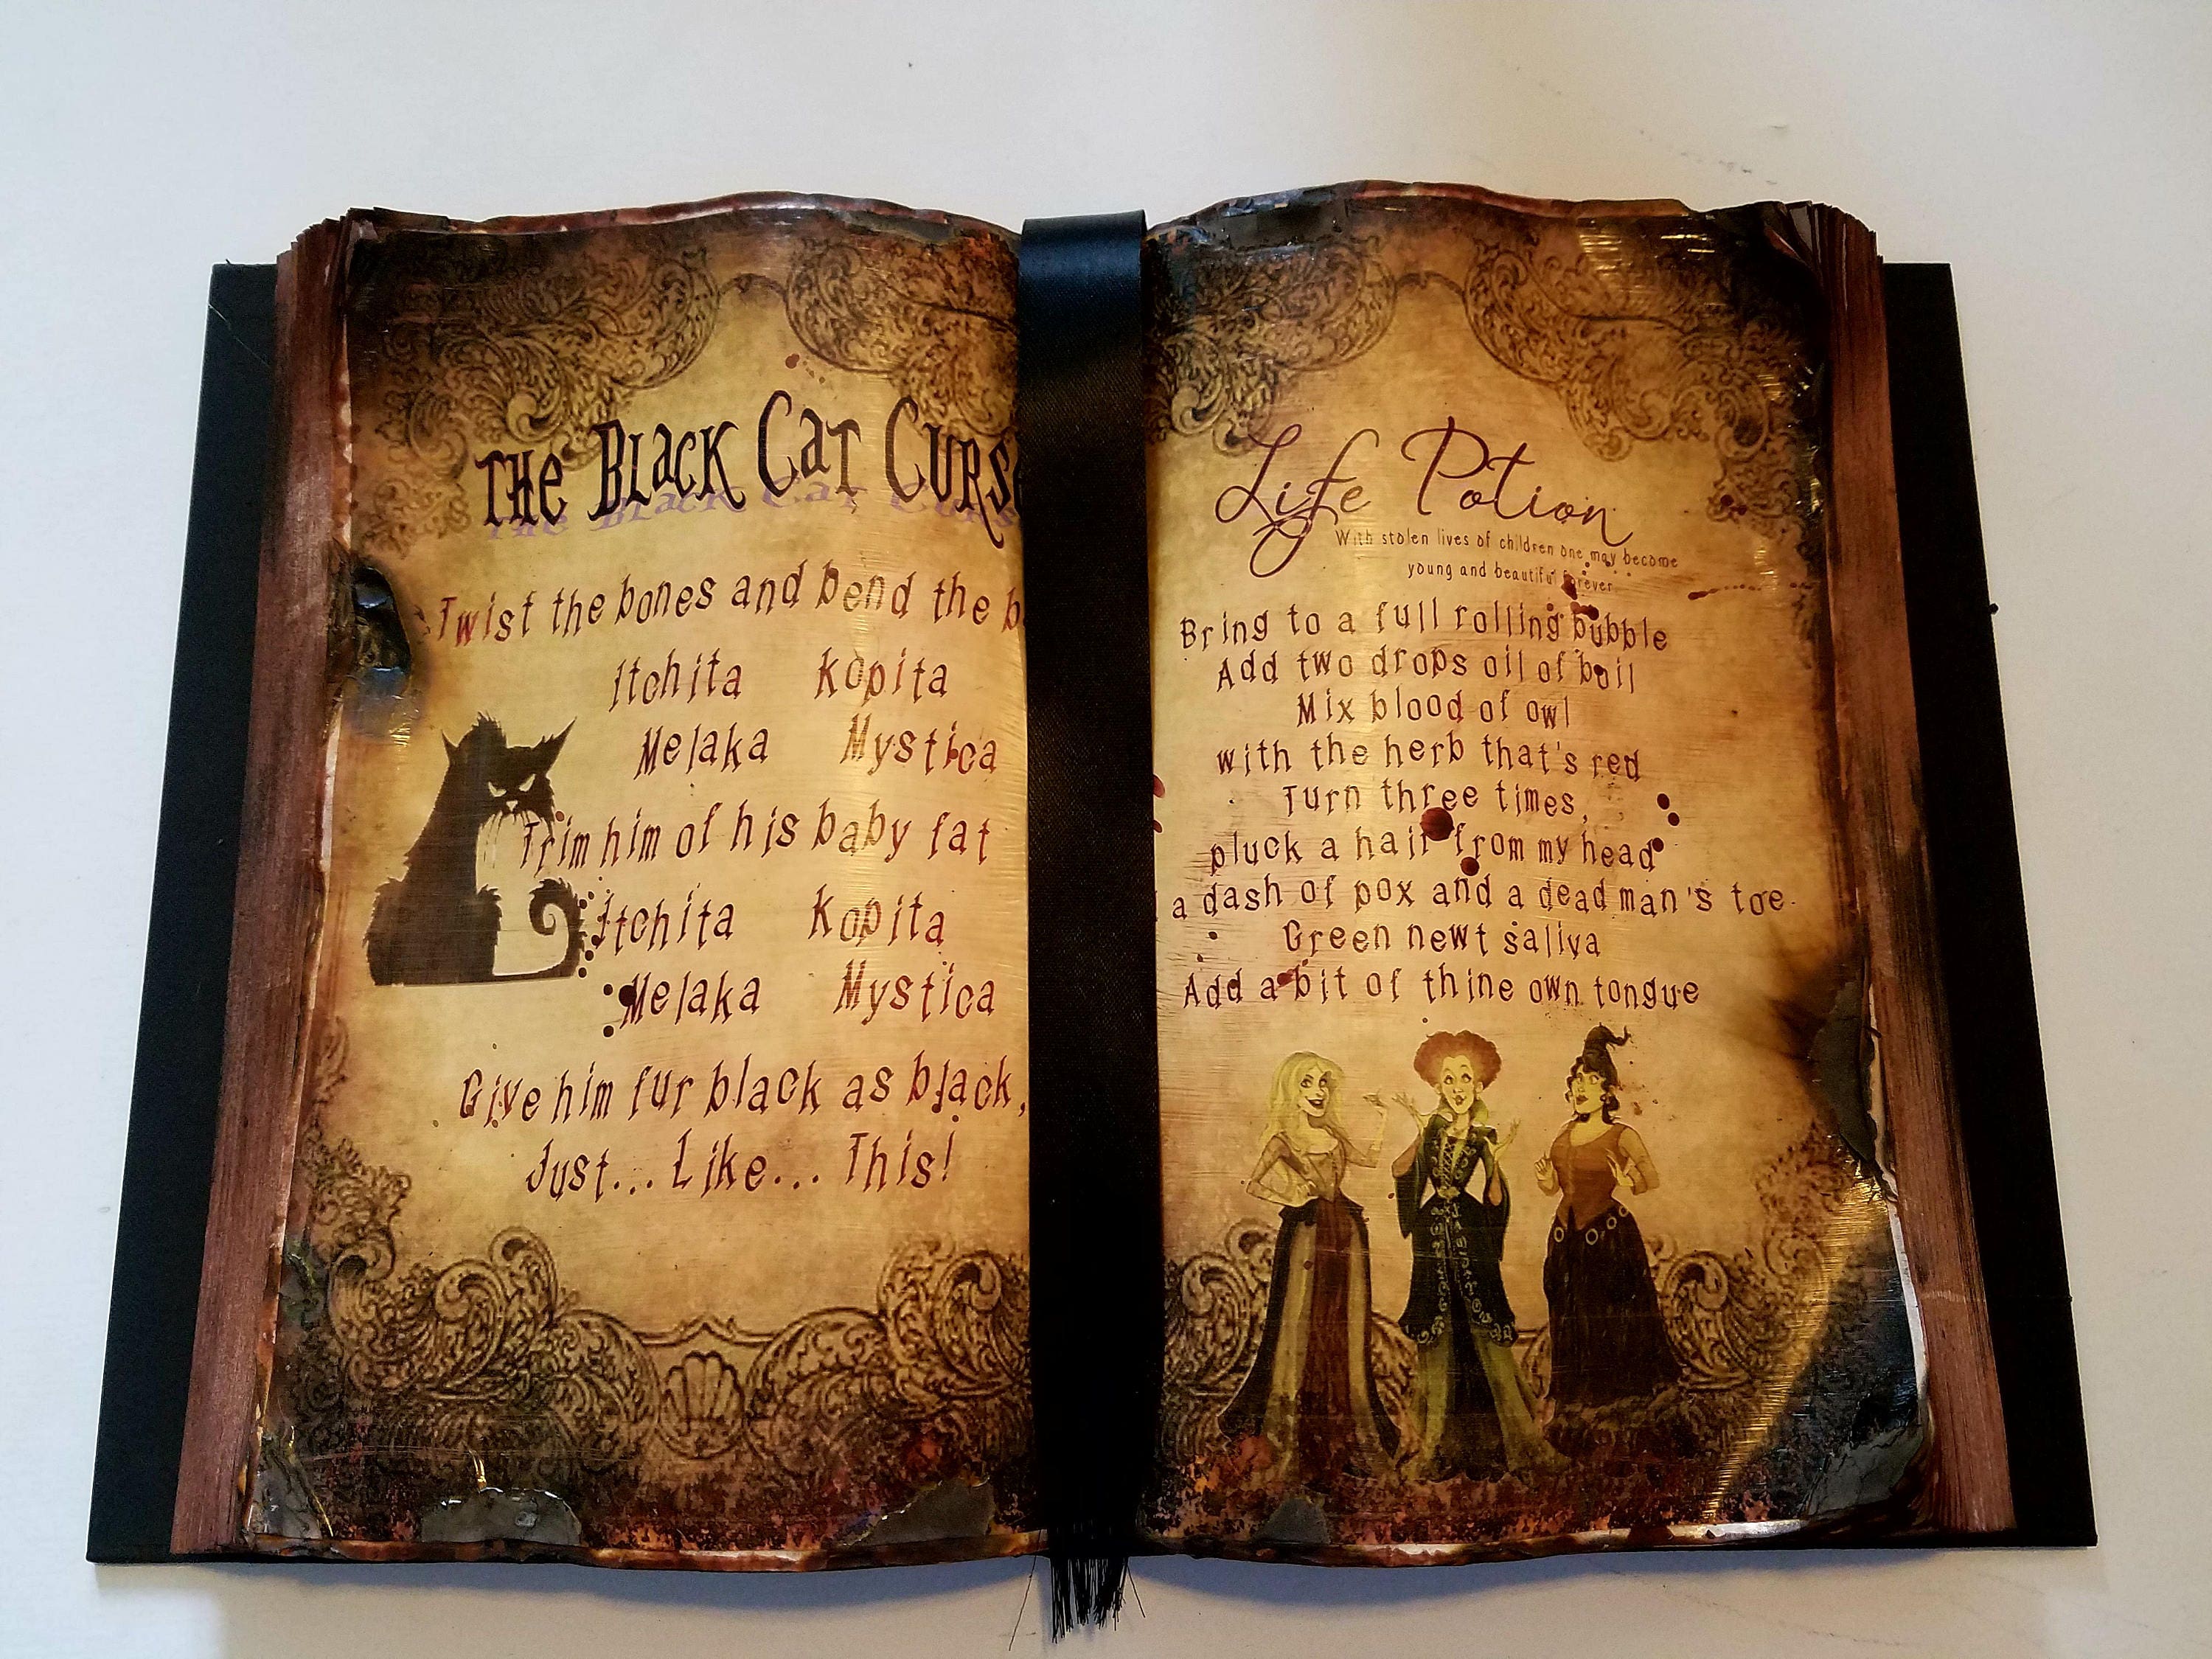 The Black Cat Curse
Twist the bones and bend the
Itchita Kopita
Melaka Mystica
Trim him of his baby fat
Itchita Kopita
Melaka Mystica
Give him fur black as black,
Just... Like... This!
Life Potion
With stolen lives of children one may become
young and beautiful forever
Bring to a full rolling bubble
Add two drops oil of boil
Mix blood of owl
with the herb that's red
Turn three times,
pluck a hair from my head
a dash of pox and a dead man's toe
Green newt saliva
Add a bit of thine own tongue